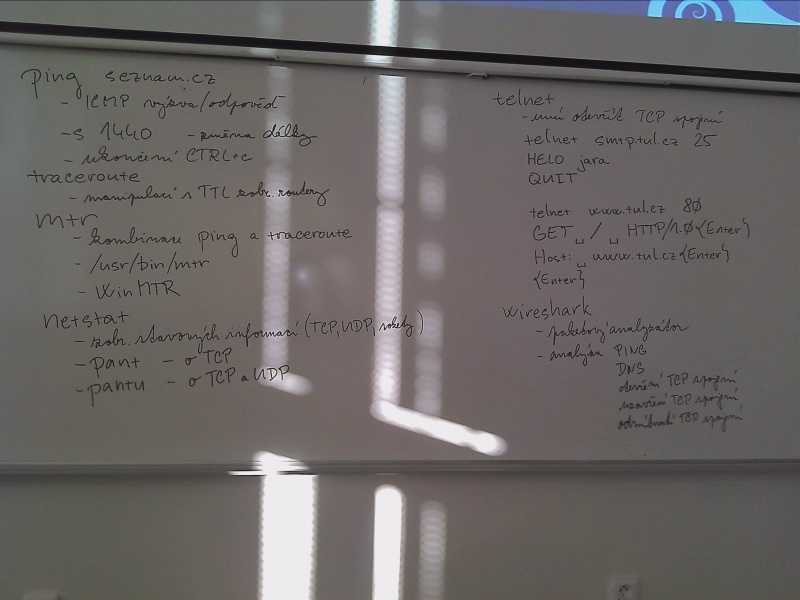 ping seznam.cz
- ICMP výzva/odpověď
-s 1440 - změna délky
- ukončení CTRL+c
traceroute
- manipulací s TTL zobr. routery
mtr
- kombinace ping a traceroute
- /usr/bin/mtr
- WinMTR
netstat
- zobr. stavových informací (TCP, UDP, sokety)
- pant - o TCP
- pantu - o TCP a UDP
telnet
- umí otevřít TCP spojení
telnet smtp.tul.cz 25
HELO java
QUIT
telnet www.tul.cz 80
GET ␣ / ␣ HTTP/1.0 {Enter}
Host: ␣ www.tul.cz {Enter}
{Enter}
wireshark
- paketový analyzátor
- analýza PING
DNS
otevření TCP spojení
uzavření TCP spojení
odmítnutí TCP spojení